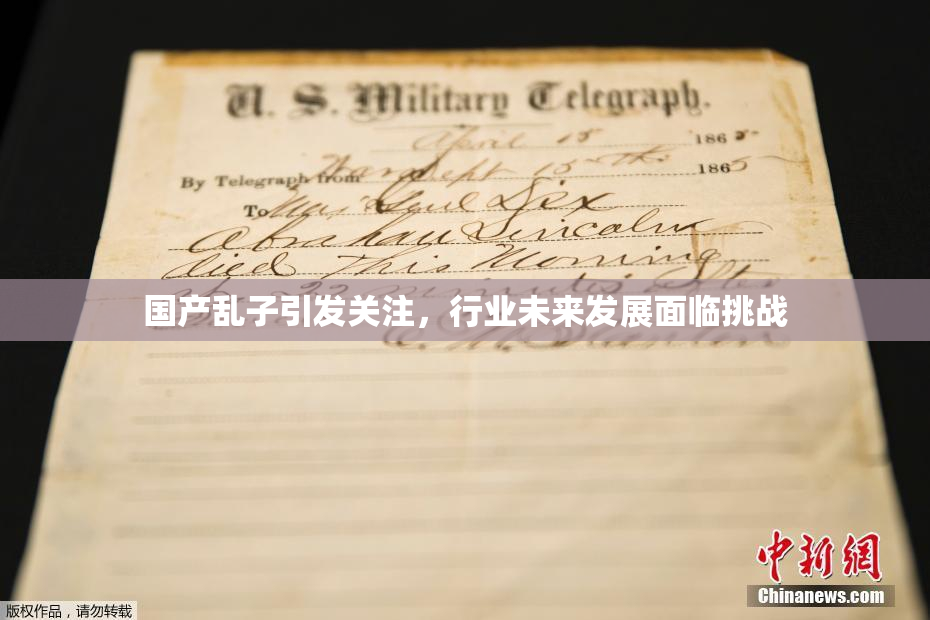 U. S. Military Telegraph.
April 15 1865
By Telegraph from War Dept 15th 1865
To Maj Genl Dix
Abraham Lincoln
died This Morning
22 minutes after
国产乱子引发关注，行业未来发展面临挑战
中新网
Chinanews.com
版权作品，请勿转载